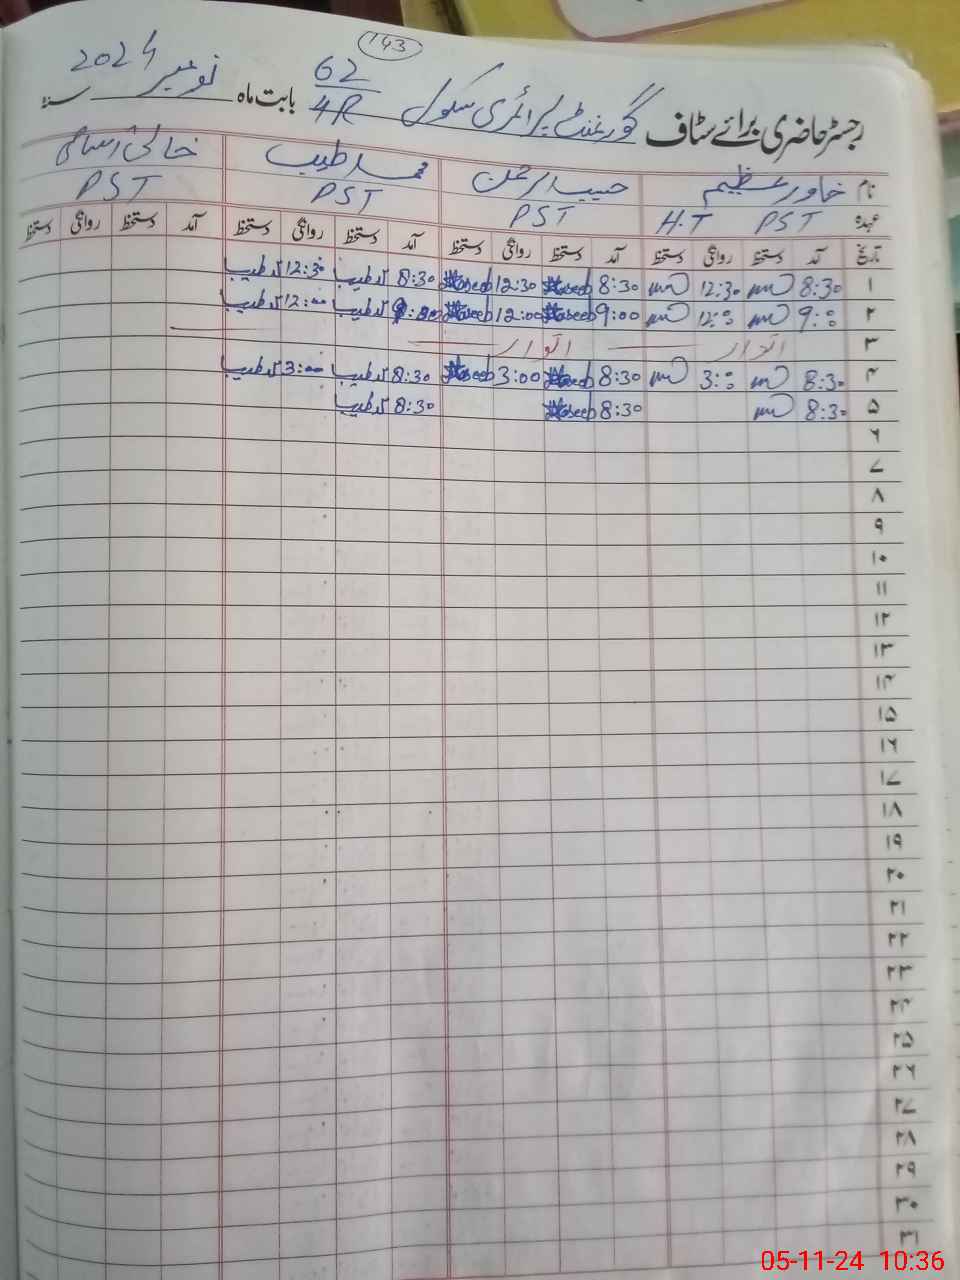 143
رجسٹر حاضری برائے سٹاف گورنمنٹ پرائمری سکول 62/4R بابت ماہ نومبر 2024 سنہ
نام خاور عظیم حبیب الرحمن محمد طیب خالی اسامی
عہدہ PST H.T PST PST PST
تاریخ آمد دستخط روانگی دستخط آمد دستخط روانگی دستخط آمد دستخط روانگی دستخط آمد دستخط روانگی دستخط
۱ 8:30 12:30 8:30 Haseeb 12:30 Haseeb 8:30 طیب 12:30 طیب
۲ 9:00 12:00 9:00 Haseeb 12:00 Haseeb 9:00 طیب 12:00 طیب
۳ اتوار اتوار
۴ 8:30 3:00 8:30 Haseeb 3:00 Haseeb 8:30 طیب 3:00 طیب
۵ 8:30 8:30 Haseeb 8:30 طیب
۶
۷
۸
۹
۱۰
۱۱
۱۲
۱۳
۱۴
۱۵
۱۶
۱۷
۱۸
۱۹
۲۰
۲۱
۲۲
۲۳
۲۴
۲۵
۲۶
۲۷
۲۸
۲۹
۳۰
۳۱
05-11-24 10:36